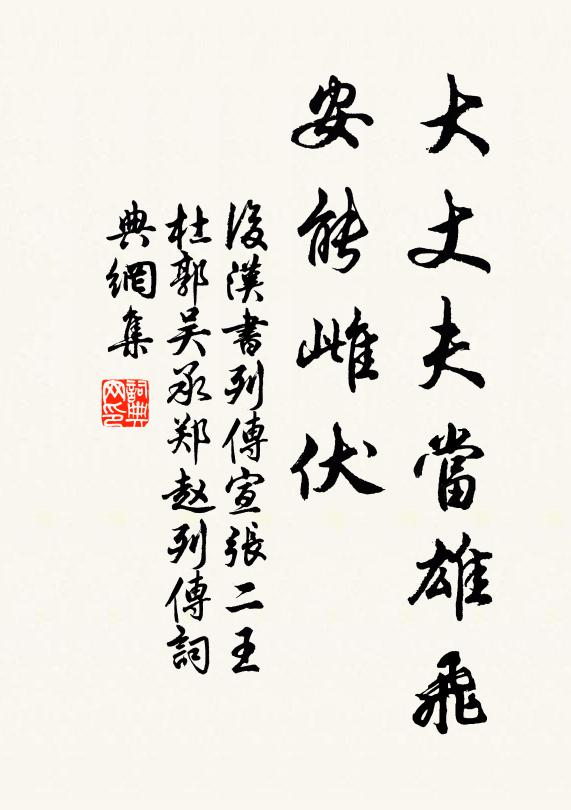 大丈夫當雄飛
安能雌伏
後漢書列傳宣張二王
杜郭吴承郑赵列傳詞
典網集
詞典网印